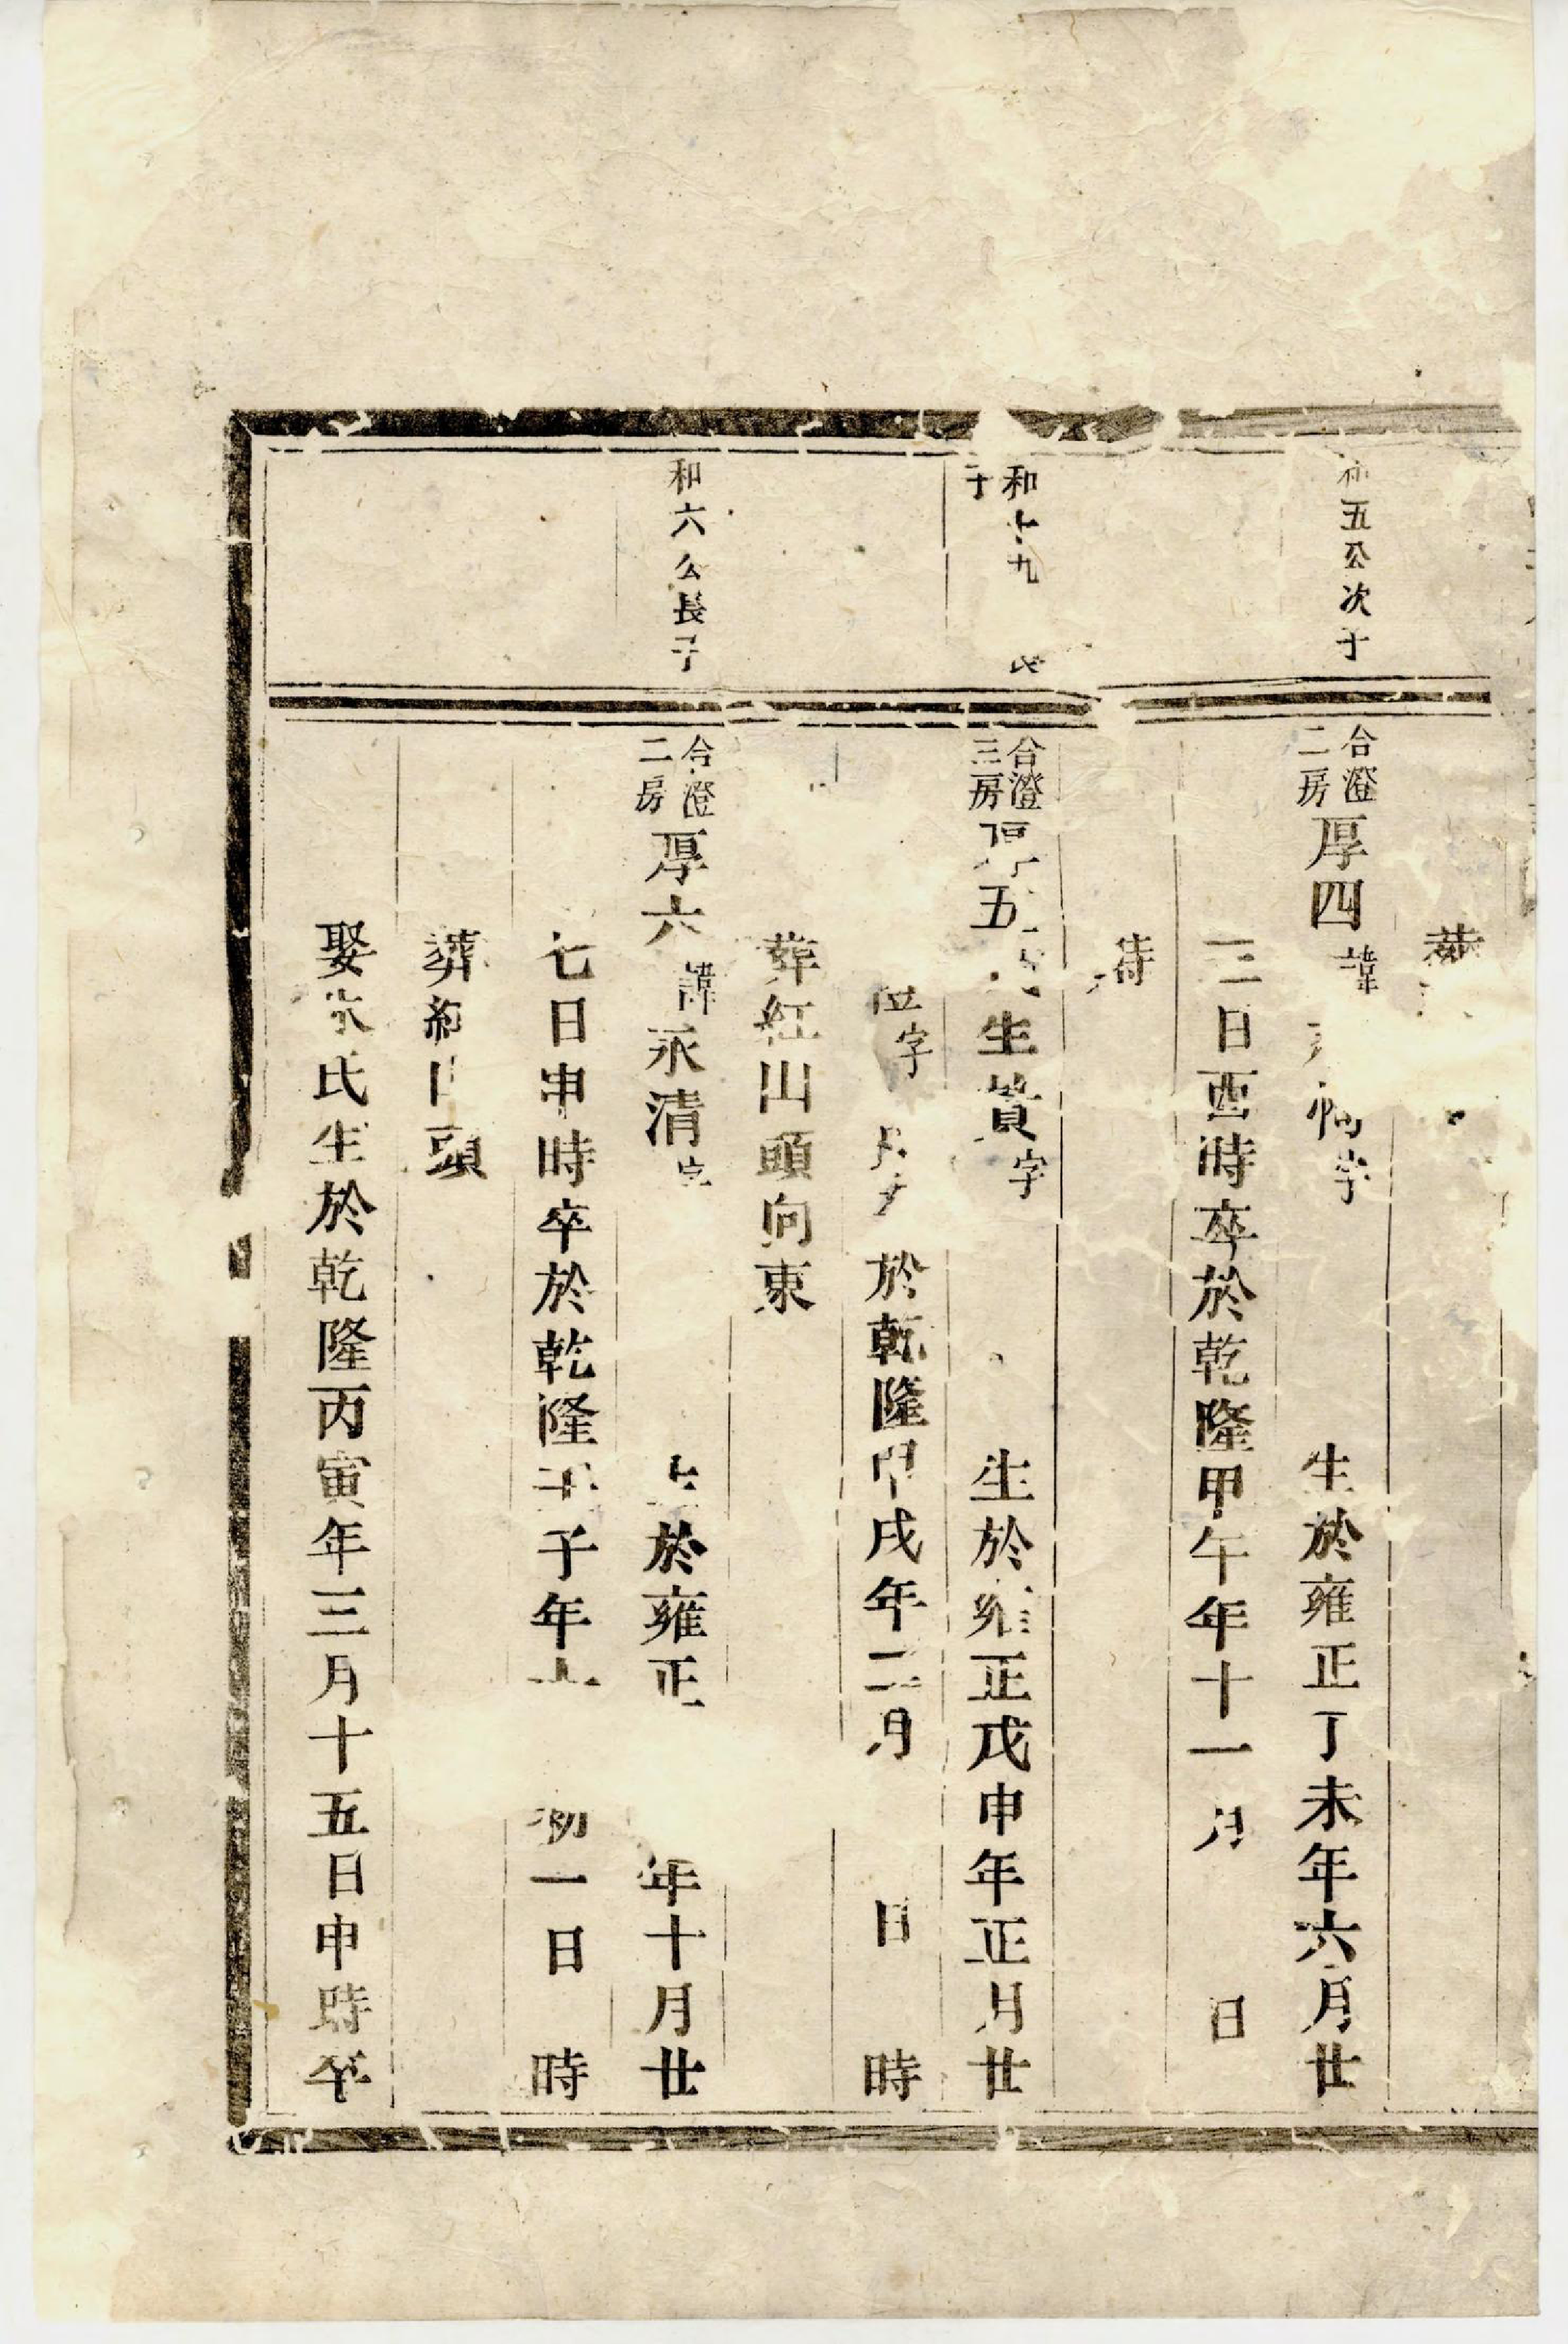 葬
五公次子
合澄二房厚四諱 福字 生於雍正丁未年六月廿
三日酉時卒於乾隆甲午年十一月 日
時
和 九
子
合澄三房厚五 生貴字 生於雍正戊申年正月廿
字 於乾隆甲戌年二月 日 時
葬紅山頭向東
和六公長子
合澄二房厚六諱永清字 生於雍正 年十月廿
七日申時卒於乾隆壬子年 初一日 時
葬紅山頭
娶 氏生於乾隆丙寅年三月十五日申時卒